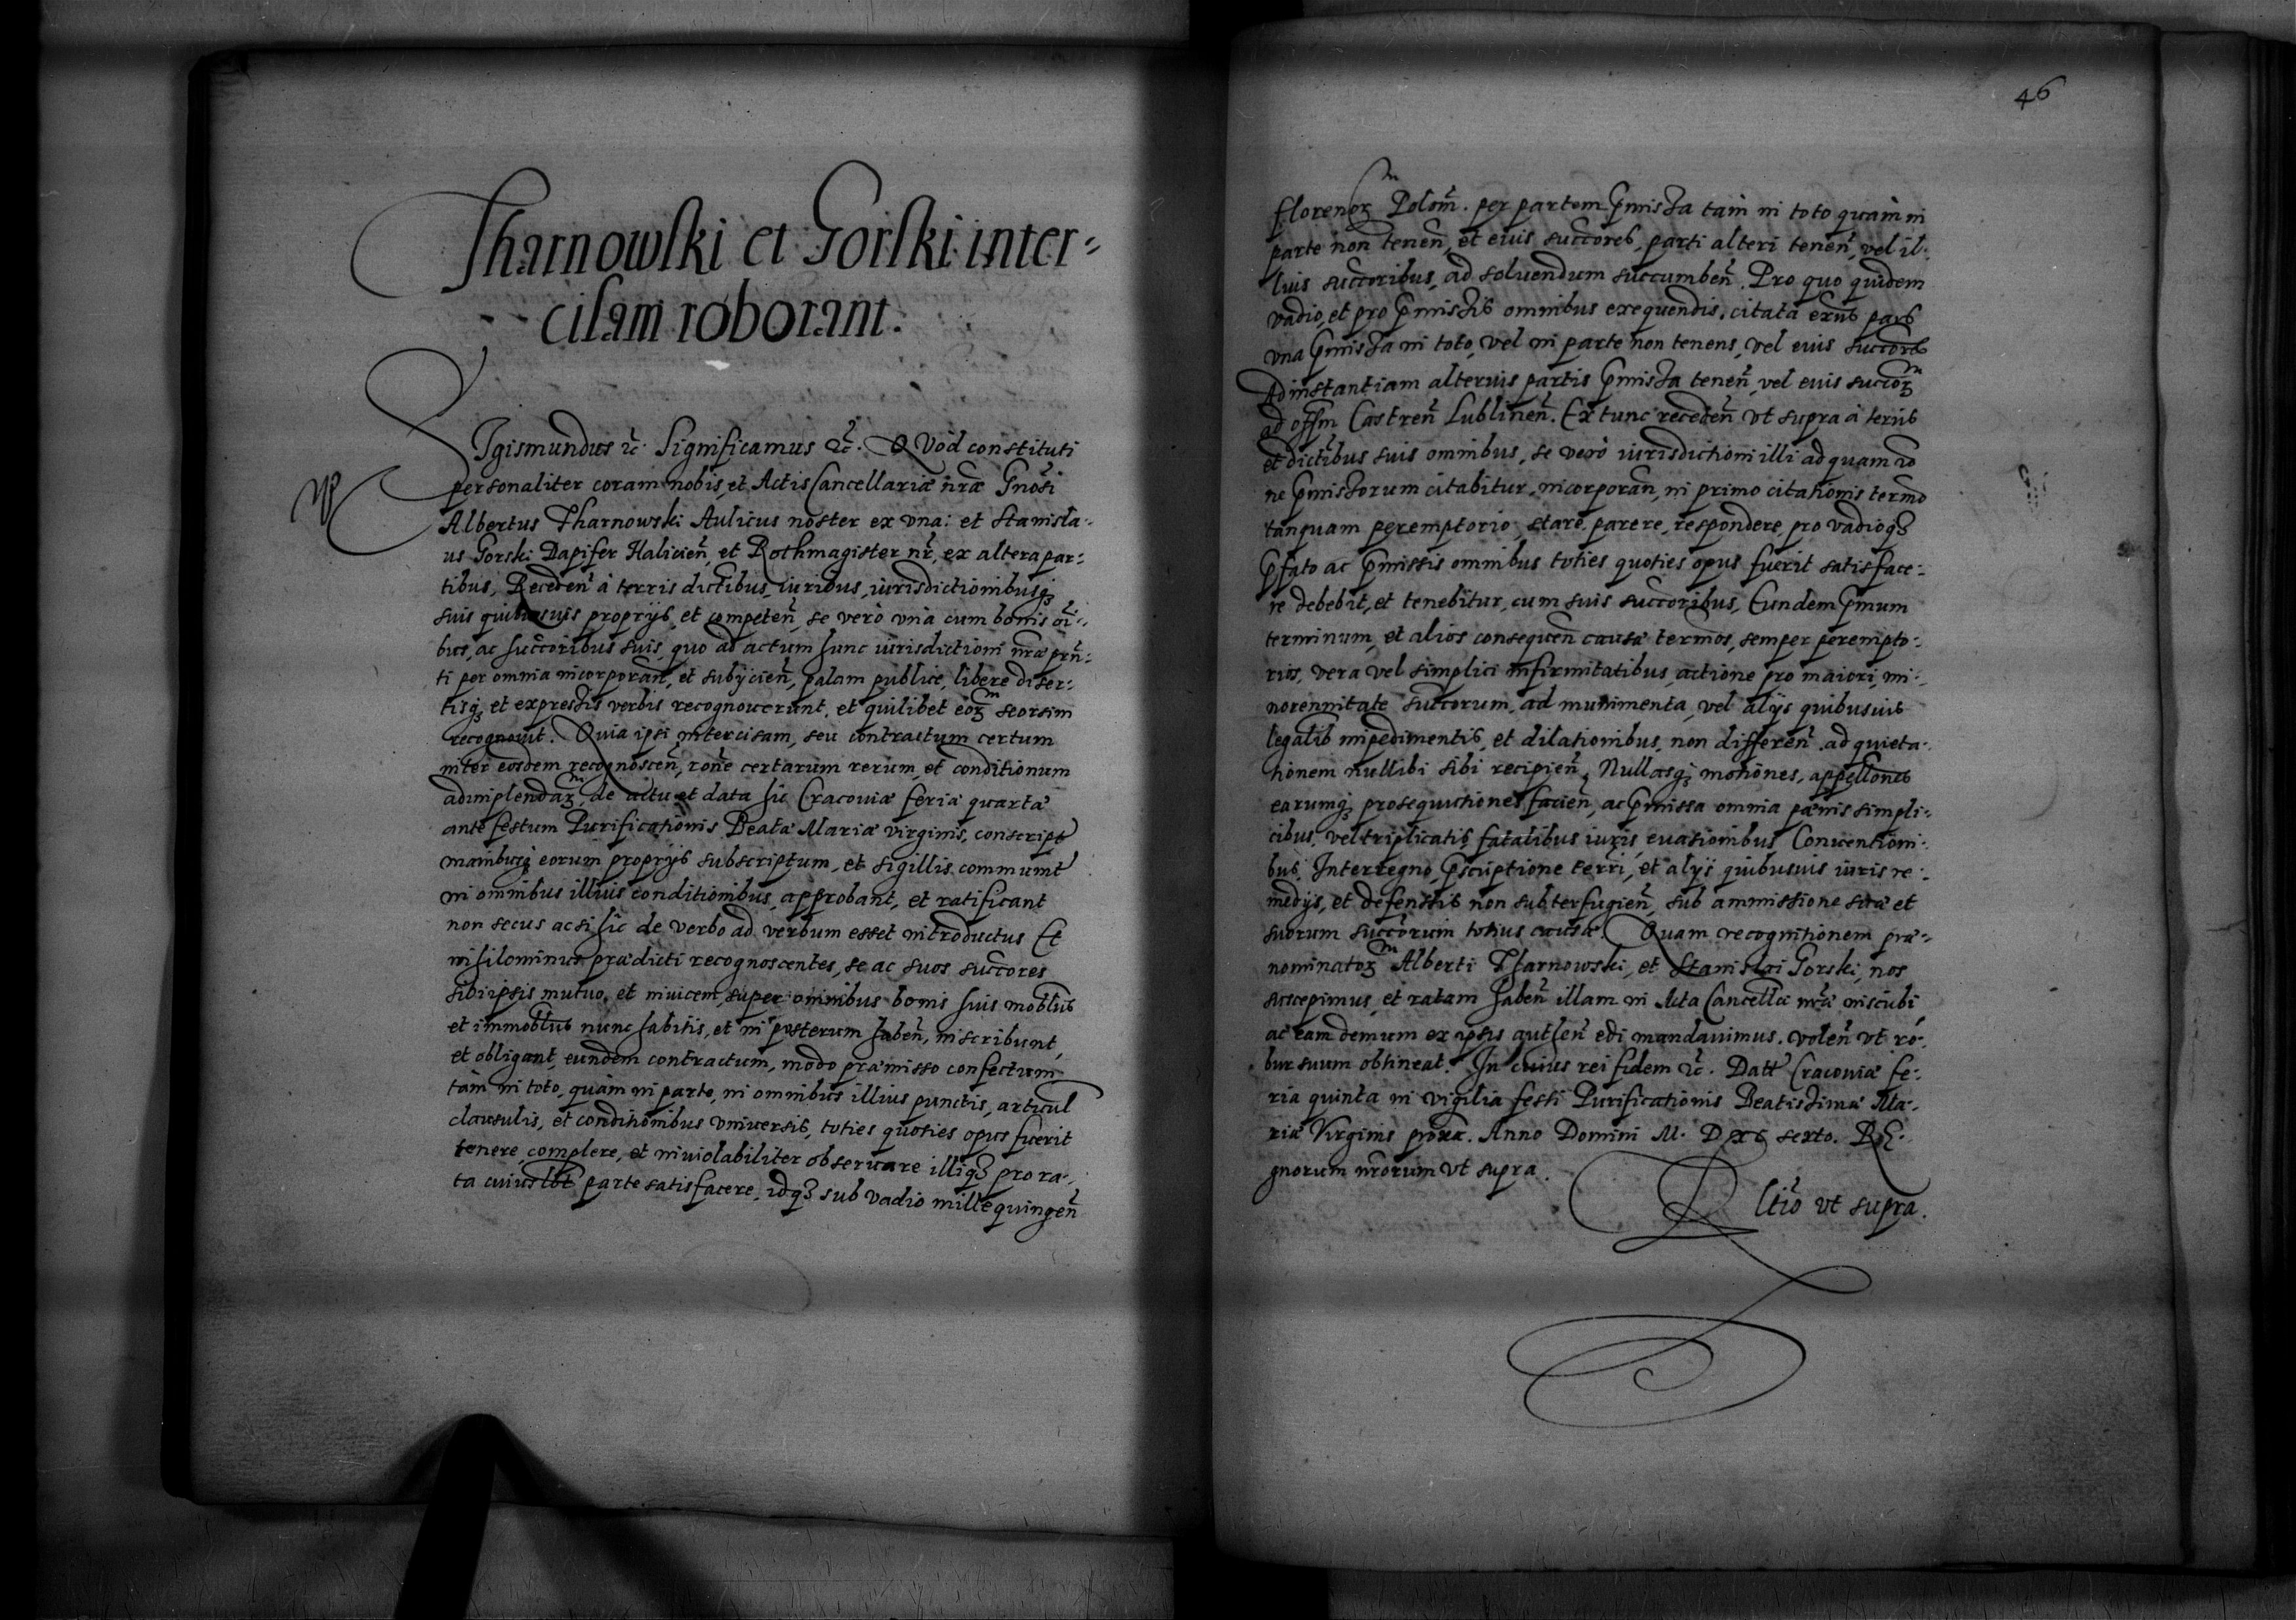 Tharnowski et Gorski inter-
cisam roborant.
SIgismundus etc. Significamus etc. QVod constituti
personaliter coram nobis, et Actis Cancellariæ nr̃æ Gnõsi
Albertus Tharnowski Aulicus noster ex vna: et Stanisla-
us Gorski Dapifer Halicien̄, et Rothmagister nr̃, ex altera par-
tibus, Receden̄ à terris dictibus, iuribus, iurisdictionibusq₃
suis quibusuis proprijs, et competen̄, se verò vnà cum bonis oĩ-
bus, ac succoribus suis, quo ad actum hunc iurisdictioni nr̃æ prñ-
ti per omnia incorporan̄, et subijcien̄, palam publice, libere diser-
tisq₃ et expressis verbis recognouerunt, et quilibet eoꝝ seorsim
recognouit. Quia ipsi intercisam, seu contractum certum
inter eosdem recognoscen̄, rõne certarum rerum, et conditionum
adimplendaꝝ, de actu et data hic Cracouiæ feria quarta
ante festum Purificationis Beatæ Mariæ virginis, conscript
manibusq₃ eorum proprijs subscriptum, et sigillis communit
in omnibus illius conditionibus, approbant, et ratificant
non secus ac si hic de verbo ad verbum esset introductus Et
nihilominus prædicti recognoscentes, se ac suos succores
sibi ipsis mutuo, et inuicem, super omnibus bonis suis moblibus
et immoblibus nunc habitis, et in posterum haben̄, inscribunt,
et obligant, eundem contractum, modo præmisso confectum
tàm in toto, quàm in parte, in omnibus illius punctis, articul
clausulis, et conditionibus vniuersis, toties quoties opus fuerit
tenere, complere, et inuiolabiliter obseruare illiq₃ pro ra-
ta cuiuslibt parte satisfacere, idq₃ sub vadio mille quingen̄
46
florenoꝝ Polom̃. per partem p̃missa tàm in toto quàm in
parte non tenen̄, et eius succores, parti alteri tenen̄, vel il-
lius succoribus, ad soluendum succumben̄. Pro quo quidem
vadio, et pro p̃missis omnibus exequendis, citata exñs pars
vna p̃missa in toto, vel in parte non tenens, vel eius succores
Ad instantiam alterius partis p̃missa tenen̄, vel eius succoꝝ
ad offm̃ Castren̄ Lublinen̄. Ex tunc receden̄ vt supra à terris
et dictibus suis omnibus, se verò iurisdictioni illi ad quam rõ
ne p̃missorum citabitur, incorporan̄, in primo citationis termo
tanquam peremptorio, stare, parere, respondere, pro vadioq₃
p̃fato ac p̃missis omnibus toties quoties opus fuerit satisface-
re debebit, et tenebitur, cum suis succoribus, Eundem p̃mum
terminum, et alios consequen̄ causæ termos, semper perempto-
rios, vera vel simplici infirmitatibus, actione pro maiori, mi-
norennitate succorum, ad munimenta, vel alijs quibusuis
legalib impedimentis, et dilationibus, non differen̄, ad quieta-
tionem nullibi sibi recipien̄, Nullasq₃ motiones, appellones
earumq₃ prosequutiones facien̄, ac p̃missa omnia pænis simpli-
cibus, vel triplicatis, fatalibus iuris, euasionibus, Conuentioni-
bus, Interregno, p̃scriptione terri, et alijs quibusuis iuris re-
medijs, et defensis non subterfugien̄, sub ammissione suæ et
suorum succorum totius causæ. Quam recognitionem præ-
nominatoꝝ Alberti Tharnowski, et Stanislai Gorski, nos
suscepimus, et ratam haben̄ illam in Acta Cancellæ nr̃æ inscribi
ac eam demum ex ipsis authen̄ edi mandauimus. volen̄ vt ro-
bur suum obtineat. In cuius rei fidem etc. Datt Cracouiæ fe-
ria quinta in vigilia festi Purificationis Beatissimæ Ma-
riæ Virginis proxa. Anno Domini M. D xc sexto. RE-
gnorum nr̃orum vt supra.
Rltio vt supra.